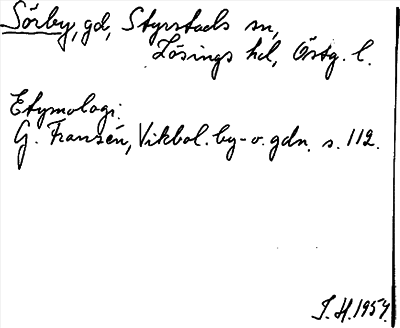 Sörby, gd, Styrstads sn,
Lösings hd, Östg. l.
Etymologi:
G. Franzén, Vikbol. by- o. gdn. s. 112.
I. H. 1954.